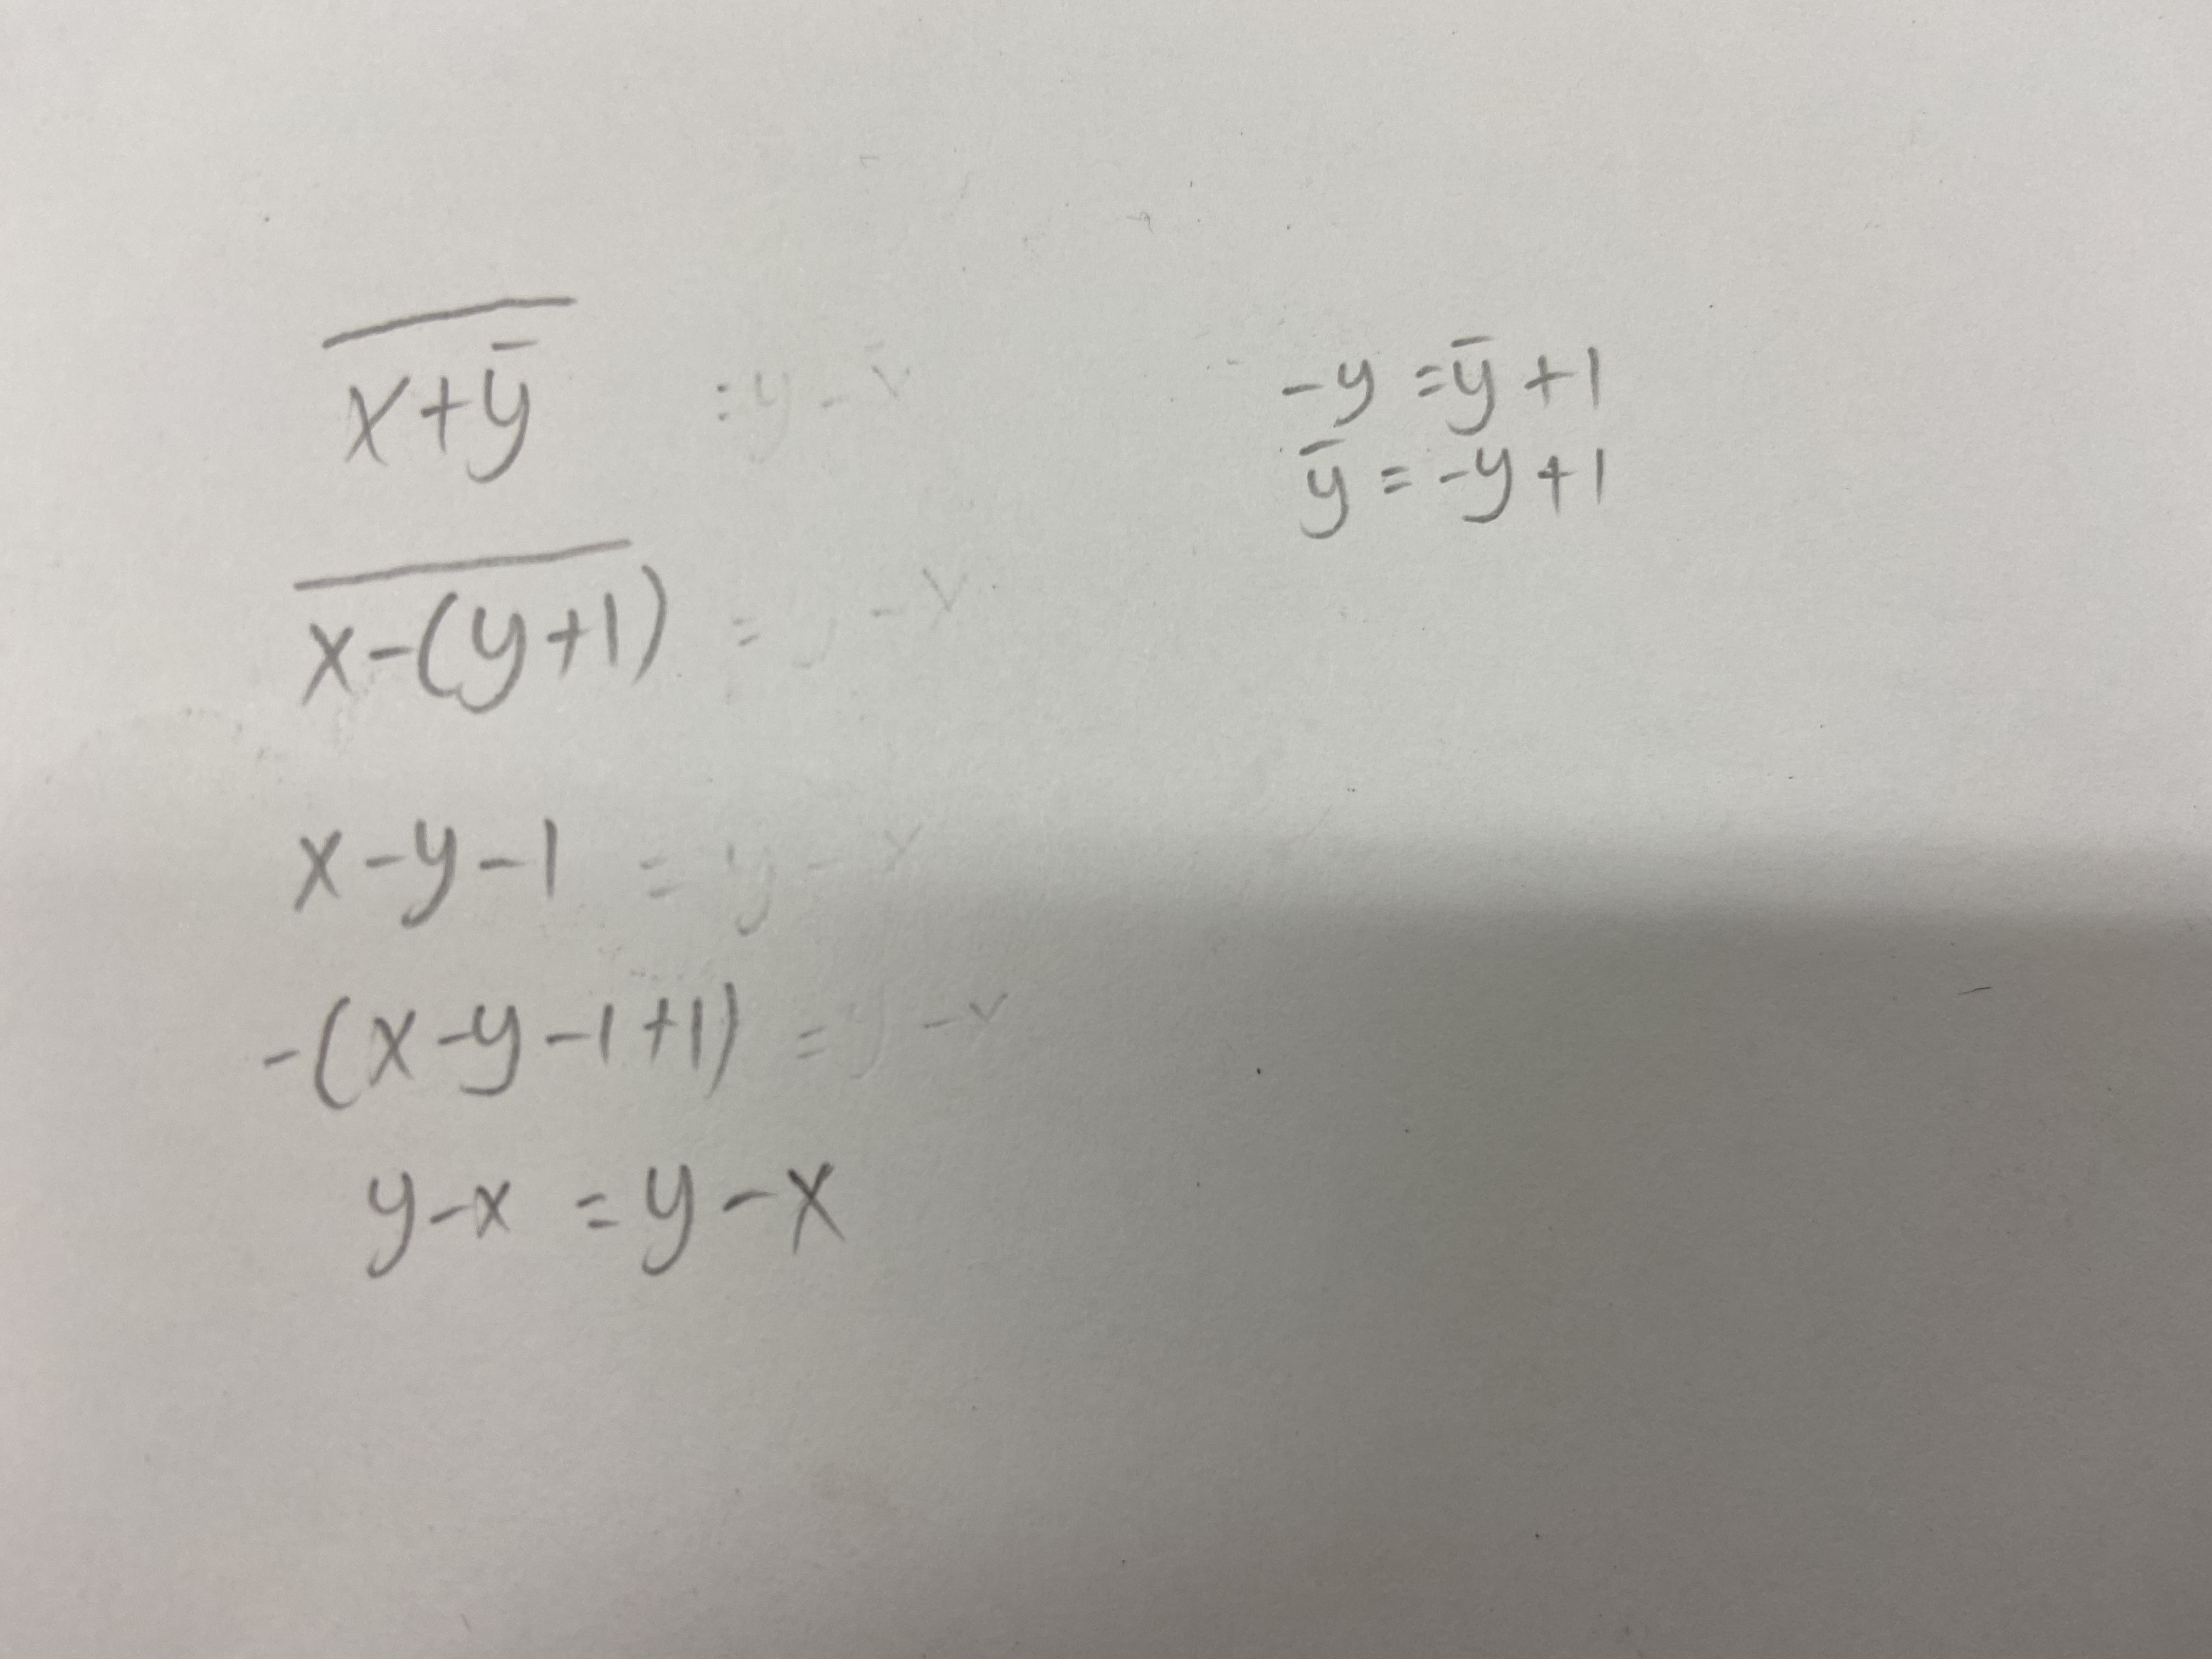 $\overline{x+\bar{y}}$ = y - x
$\overline{x-(y+1)}$ = y - x
x - y - 1 = y - x
-(x - y - 1 + 1) = y - x
y - x = y - x
-y = $\bar{y}$ + 1
$\bar{y}$ = -y + 1